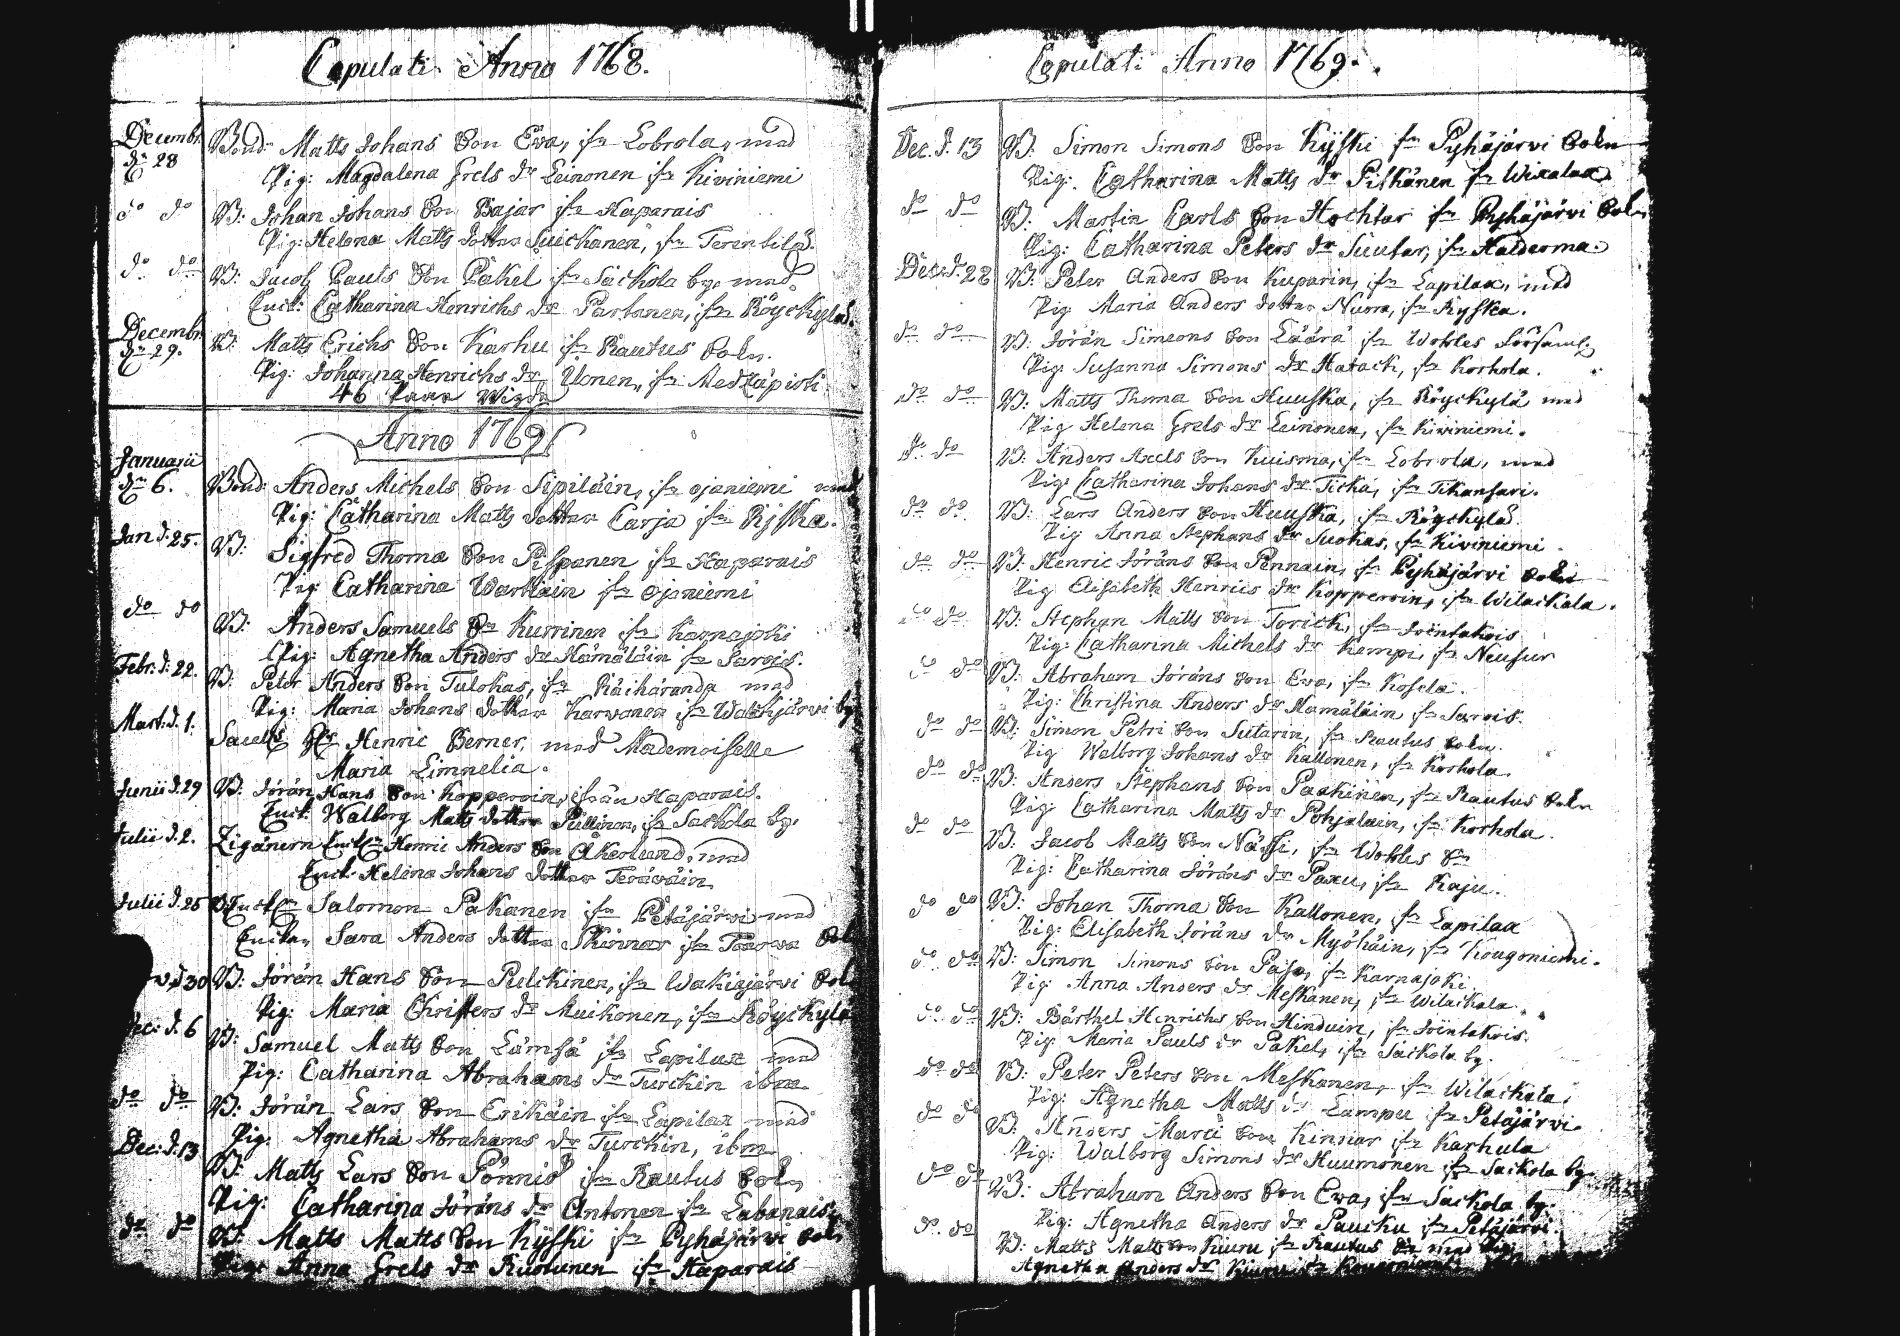 Copulati Anno 1768.
Decembr. Bond: Matts Johans Son Ewa, ifrn Lobrola, med
dn 28 Pig: Magdalena Grels dr Leinonen ifrn Kiviniemi
do do B: Johan Johans Son Bajar ifrn Haparais
Pig: Helena Matts dotter Suickanen, ifrn Terentilä.
do do B: Jacob Pauls Son Päkel ifrn Sackola by, med
Enck: Catharina Henrichs dr Partanen, ifrn Röyckylä.
Decembr. B: Matts Erichs Son Karhu ifrn Rautus Sokn.
dn 29. Pig: Johanna Henrichs dr Ilonen, ifrn Medzäpirti
46 Paar Wigda
Anno 1769
Januarii
dn 6. Bond: Anders Michels Son Sipiläin, ifrn Ojaniemi med
Pig: Catharina Matts dotter Carja ifrn Rijska.
Jan d. 25. B: Sigfred Thoma Son Pispanen ifrn Haparais
Pig Catharina Wartiain ifrn Ojaniemi
do do B: Anders Samuels Son Kurrinen ifrn Karnajoki
Pig: Agnetha Anders dr Hämäläin ifrn Sarvis.
Febr: d. 22. B: Peter Anders Son Tulokas, ifrn Räihäranda med
Pig: Maria Johans dotter Karvanen ifrn Watkjärvi by
Mart: d. 1. Henric Berner, med Mademoiselle
Maria Limnelia.
Junii d. 29 B: Jöran Hans Son Kopperoin, ifrån Haparais.
Enck: Walborg Matts dotter Pullinen, ifrn Sackola by.
Julii d. 2. Ziganern Henric Anders Son Åkerlund, med
Enck: Helena Johans dotter Teräväin
Julii d. 25 Salomon Pakanen ifrn Petäjärvi med
Enckan Sara Anders dotter Skinnar ifrn
d 30 B: Jöran Hans Son Pulckinen, ifrn Wakiajärvi
Pig: Maria Christers dr Muikonen, ifrn Röyckylä
Dec: d. 6 B: Samuel Matts Son Lämsä ifrn Lapilax med
Pig: Catharina Abrahams dr Turckin ibm
do do B: Jöran Lars Son Erikäin ifrn Lapilax med
Pig: Agnetha Abrahams dr Turckin, ibm
Dec: d. 13 B: Matts Lars Son Pönniö ifrn Rautus Sokn
Pig: Catharina Jörans dr Antonen ifrn Labanais.
do do B: Matts Matts Son Kijski ifrn Pyhäjärvi Sokn
Pig: Anna Grels dr Ruotunen ifrn Haparais
Copulati Anno 1769.
Dec. d. 13 B: Simon Simons Son Kijski frn Pyhäjärvi Sokn
Pig: Catharina Matts dr Pitkänen frn Wixalax
do do B: Martin Carls Son Hochtar ifrn Pyhäjärvi Sokn
Pig: Catharina Peters dr Suutar, ifrn Halderma.
Dec: d. 28 B: Peter Anders Son Kuparin, ifrn Lapilax, med
Pig Maria Anders dotter Nurra, ifrn Ryska.
do do B: Jöran Simeons Son Läärä ifrn Wokles Församl.
Pig: Susanna Simons dr Hatack, ifrn Korhola.
do do B: Matts Thoma Son Huuska, ifrn Röyckylä med
Pig Helena Grels dr Leinonen, ifrn Kiviniemi.
do do B: Anders Axels Son Kuisma, ifrn Lobrola, med
Pig: Catharina Johans dr Ticka, ifrn Tikansari.
do do B: Lars Anders Son Huuska, ifrn Röyckylä.
Pig Anna Stephans dr Suokas, ifrn Kiviniemi.
do do B: Henric Jörans Son Pennain, ifrn Pyhäjärvi Sokn
Pig Elisabeth Henrics dr Kopperoin, ifrn Wilackala.
do do B: Stephan Matts Son Torick, ifrn
Pig: Catharina Michels dr Kempi, ifrn Neusur
do do B: Abraham Jörans Son Ewa, ifrn Kosela.
Pig: Christina Anders dr Hamäläin ifrn Sarvis.
do do B: Simon Petri Son Sutarin, ifrn Rautus Sokn.
Pig Walborg Johans dr Kallonen, ifrn Korhola.
do do B: Anders Stephans Son Paakinen, ifrn Rautus Sokn
Pig Catharina Matts dr Pohjalain, ifrn Korhola.
do do B: Jacob Matts Son Näsi, ifrn Wokles Sn
Pig: Catharina Jörans dr Paxu, ifrn Kaju.
do do B: Johan Thoma Son Kallonen, ifrn Lapilax
Pig: Elisabeth Jörans dr Myöhäin, ifrn Kougoniemi.
do do B: Simon Simons Son Paju, ifrn Karnajoki
Pig Anna Anders dr Meskanen, ifrn Wilackala.
do do B: Bärthel Henrichs Son Hinduin, ifrn
Pig: Maria Pauls dr Päkel, ifrn Sackola by.
do do B: Peter Peters Son Meskanen, ifrn Wilackala.
Pig: Agnetha Matts dr Lampu ifrn Petäjärvi.
do do B: Anders Marci Son Kinnar ifrn Karhula
Pig: Walborg Simons dr Huumonen ifrn Sackola by.
do do B: Abraham Anders Son Ewa, ifrn Sackola by.
Pig: Agnetha Anders dr Paucku ifrn Petäjärvi.
do do B: Matts Matts Son Kiuru ifrn Rautus Sn med Pig
Agnetha Anders dr Kiuru ifrn